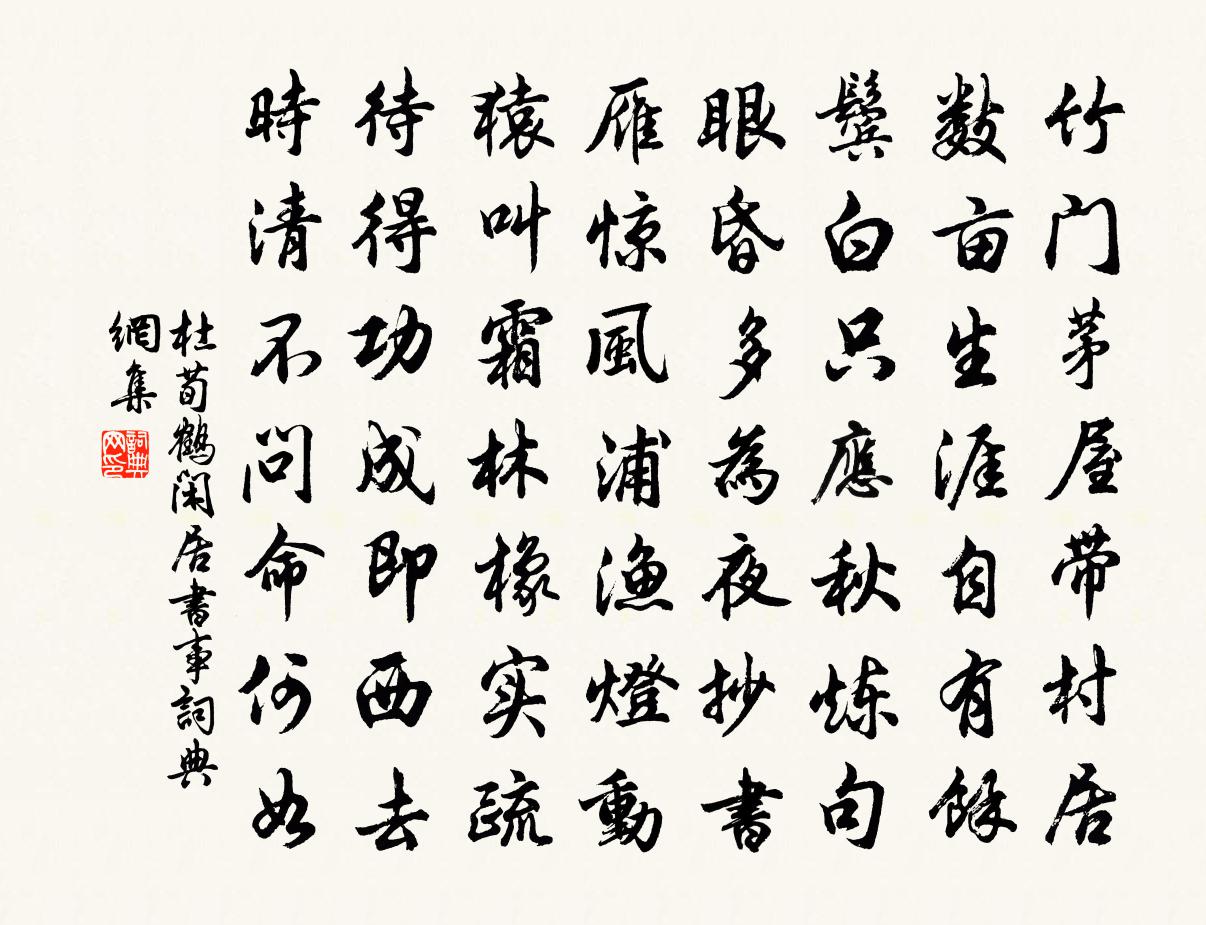 竹门茅屋带村居
数亩生涯自有餘
鬓白只應秋炼句
眼昏多為夜抄書
雁惊風浦渔燈動
猿叫霜林橡实疏
待得功成即西去
時清不问命何如
杜荀鶴闲居書事詞典
網集
詞典网印